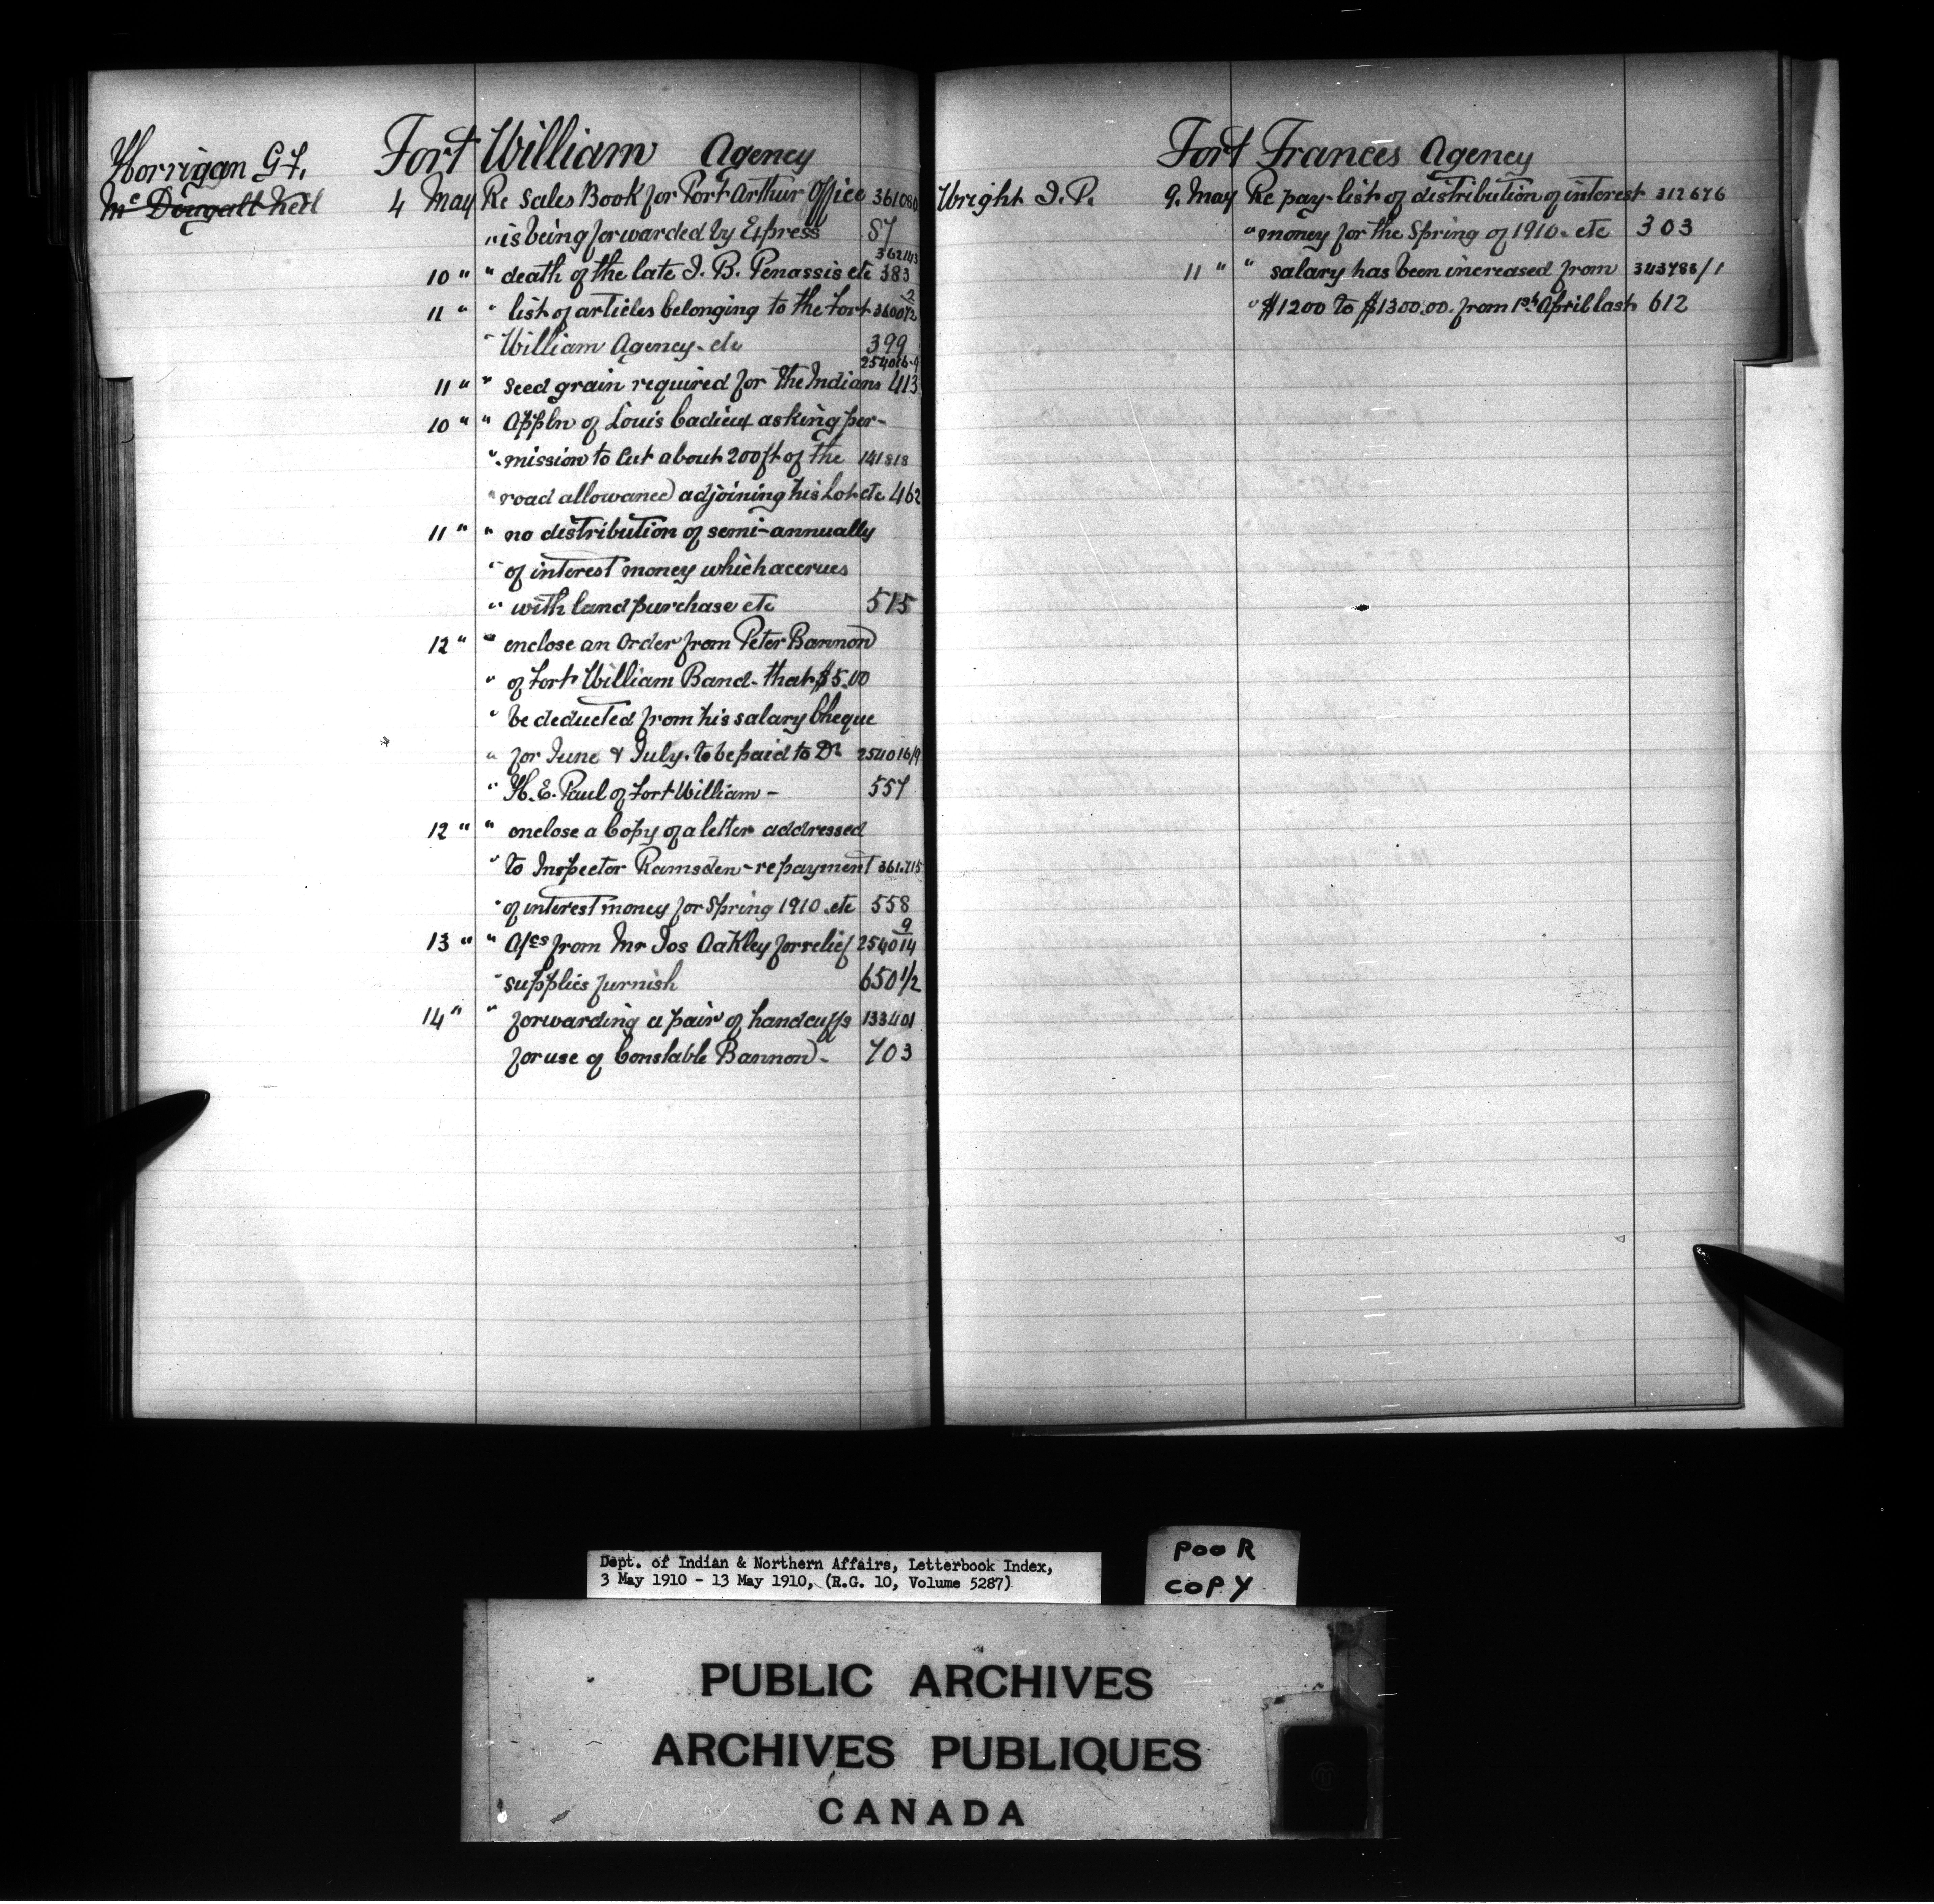 Fort William Agency
Horrigan G.F.
Mc Dougall Neil
4 May Re Sales Book for Port Arthur Office 361080
" is being forwarded by Express 87
362143
10 " " death of the late J. B. Penassis etc 383
11 " " list of articles belonging to the Fort 360072/2
" William Agency. etc 399
254016-9
11 " " seed grain required for the Indians 413
10 " " Appln of Louis Cadieux asking per-
" mission to cut about 200 ft of the 141818
" road allowance adjoining his Lot etc 462
11 " " no distribution of semi-annually
" of interest money which accrues
" with land purchase etc 515
12 " " enclose an Order from Peter Bannon
" of Fort William Band - that $5.00
" be deducted from his salary Cheque
" for June & July. to be paid to Dr 254016/9
" H. E. Paul of Fort William - 557
12 " " enclose a Copy of a letter addressed
" to Inspector Ramsden - re payment 361.715
" of interest money for Spring 1910. etc 558
9
13 " " A/cs from Mr Jos Oakley for relief 254014
" supplies furnish 650 1/2
14 " " forwarding a pair of handcuffs 133401
for use of Constable Bannon - 703
Fort Frances Agency
Wright J. P. 9. May Re pay-list of distribution of interest 312676
" money for the Spring of 1910. etc 303
11 " " salary has been increased from 343788/1
" $1200 to $1300.00. from 1st April last 612
Dept. of Indian & Northern Affairs, Letterbook Index,
3 May 1910 - 13 May 1910, (R.G. 10, Volume 5287)
POOR
COPY
PUBLIC ARCHIVES
ARCHIVES PUBLIQUES
CANADA